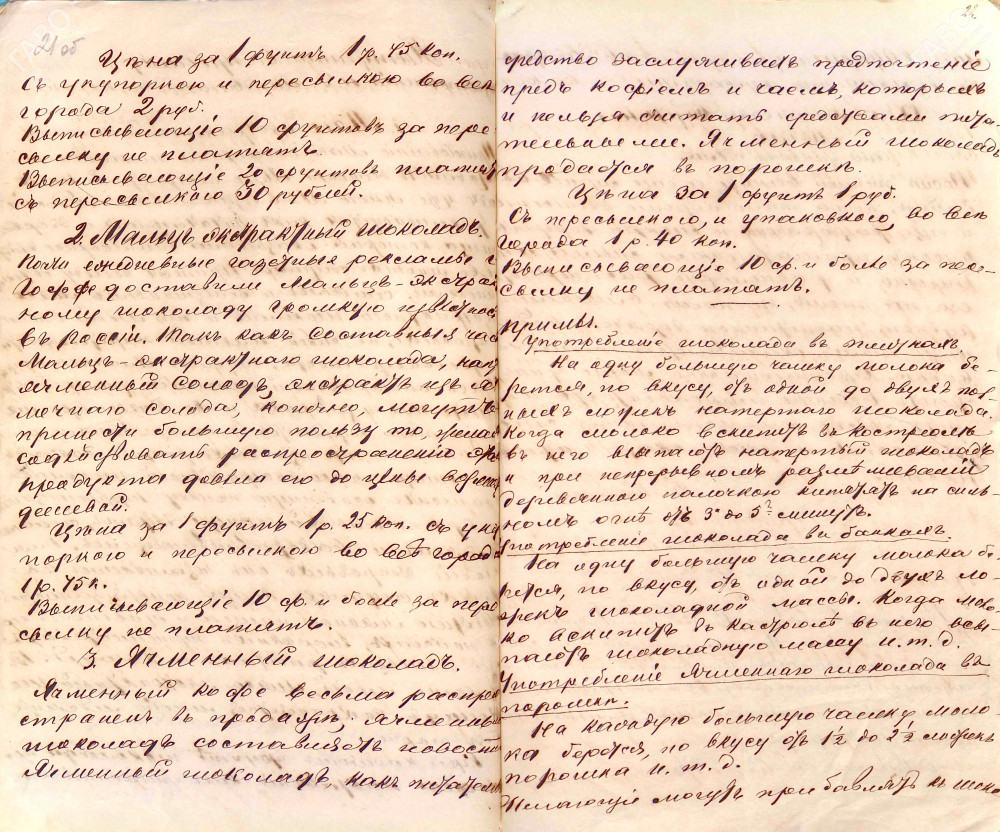 21 об
Цѣна за 1 фунтъ 1 р. 45 коп.
Съ упупоркою и пересылкою во всѣ
города 2 руб.
Выписывающіе 10 фунтовъ за пере-
сылку не платятъ.
Выписывающіе 20 фунтовъ платятъ
съ пересылкою 30 рублей.
2. Мальцъ экстрактный шоколадъ.
Почти ежедневные газетные рекламы г
Гоффе доставили Мальцъ-экстрак
ному шоколаду громкую извѣстнос
въ Россіи. Такъ какъ составныя час
Мальцъ-экстрактнаго шоколада, нап
ячменный солодъ, экстрактъ изъ яч
меннаго солода, конечно, могутъ
принести большую пользу то, желая
содѣйствовать распространенію
продукта довела его до цѣны
дешевой.
Цѣна за 1 фунтъ 1 р. 25 коп. съ уку
поркою и пересылкою во всѣ города
1 р. 75 к.
Выписывающіе 10 ф. и болѣе за пере
сылку не платятъ.
3. Ячменный шоколадъ.
Ячменный кофе весьма распро
страненъ въ продажѣ, ячменны
шоколадъ составляетъ новость
Ячменный шоколадъ, какъ питательн
22
средство заслуживаетъ предпочтеніе
предъ кофіемъ и чаемъ, которыхъ
и нельзя считать средствами пита-
тельными. Ячменный шоколадъ
продается въ порошкѣ.
Цѣна за 1 фунтъ 1 руб.
Съ пересылкою, и упаковкою, во всѣ
города 1 р. 40 коп.
Выписывающіе 10 ф. и болѣе за пере-
сылку не платятъ.
примѣ.
Употребленіе шоколада въ плиткахъ.
На одну большую чашку молока бе-
рется, по вкусу, отъ одной до двухъ пол-
ныхъ ложекъ натертаго шоколада.
Когда молоко вскипитъ въ кострюлѣ
въ него всыпаютъ натертый шоколадъ
и при непрерывномъ размѣшиваніи
деревянною палочкою кипятятъ на силь-
номъ огнѣ отъ 3 до 5 минутъ.
Употребленіе шоколада въ банкахъ.
На одну большую чашку молока бе-
рется, по вкусу, отъ одной до двухъ ло-
жекъ шоколадной массы. Когда моло-
ко вскипитъ въ кастрюлѣ въ него всы-
паютъ шоколадную массу и. т. д.
Употребленіе Ячменнаго шоколада въ
порошкѣ.
На каждую большую чашку моло-
ка берется, по вкусу отъ 1½ до 2½ ложекъ
порошка и. т. д.
Желающіе могутъ прибавлять къ шоко